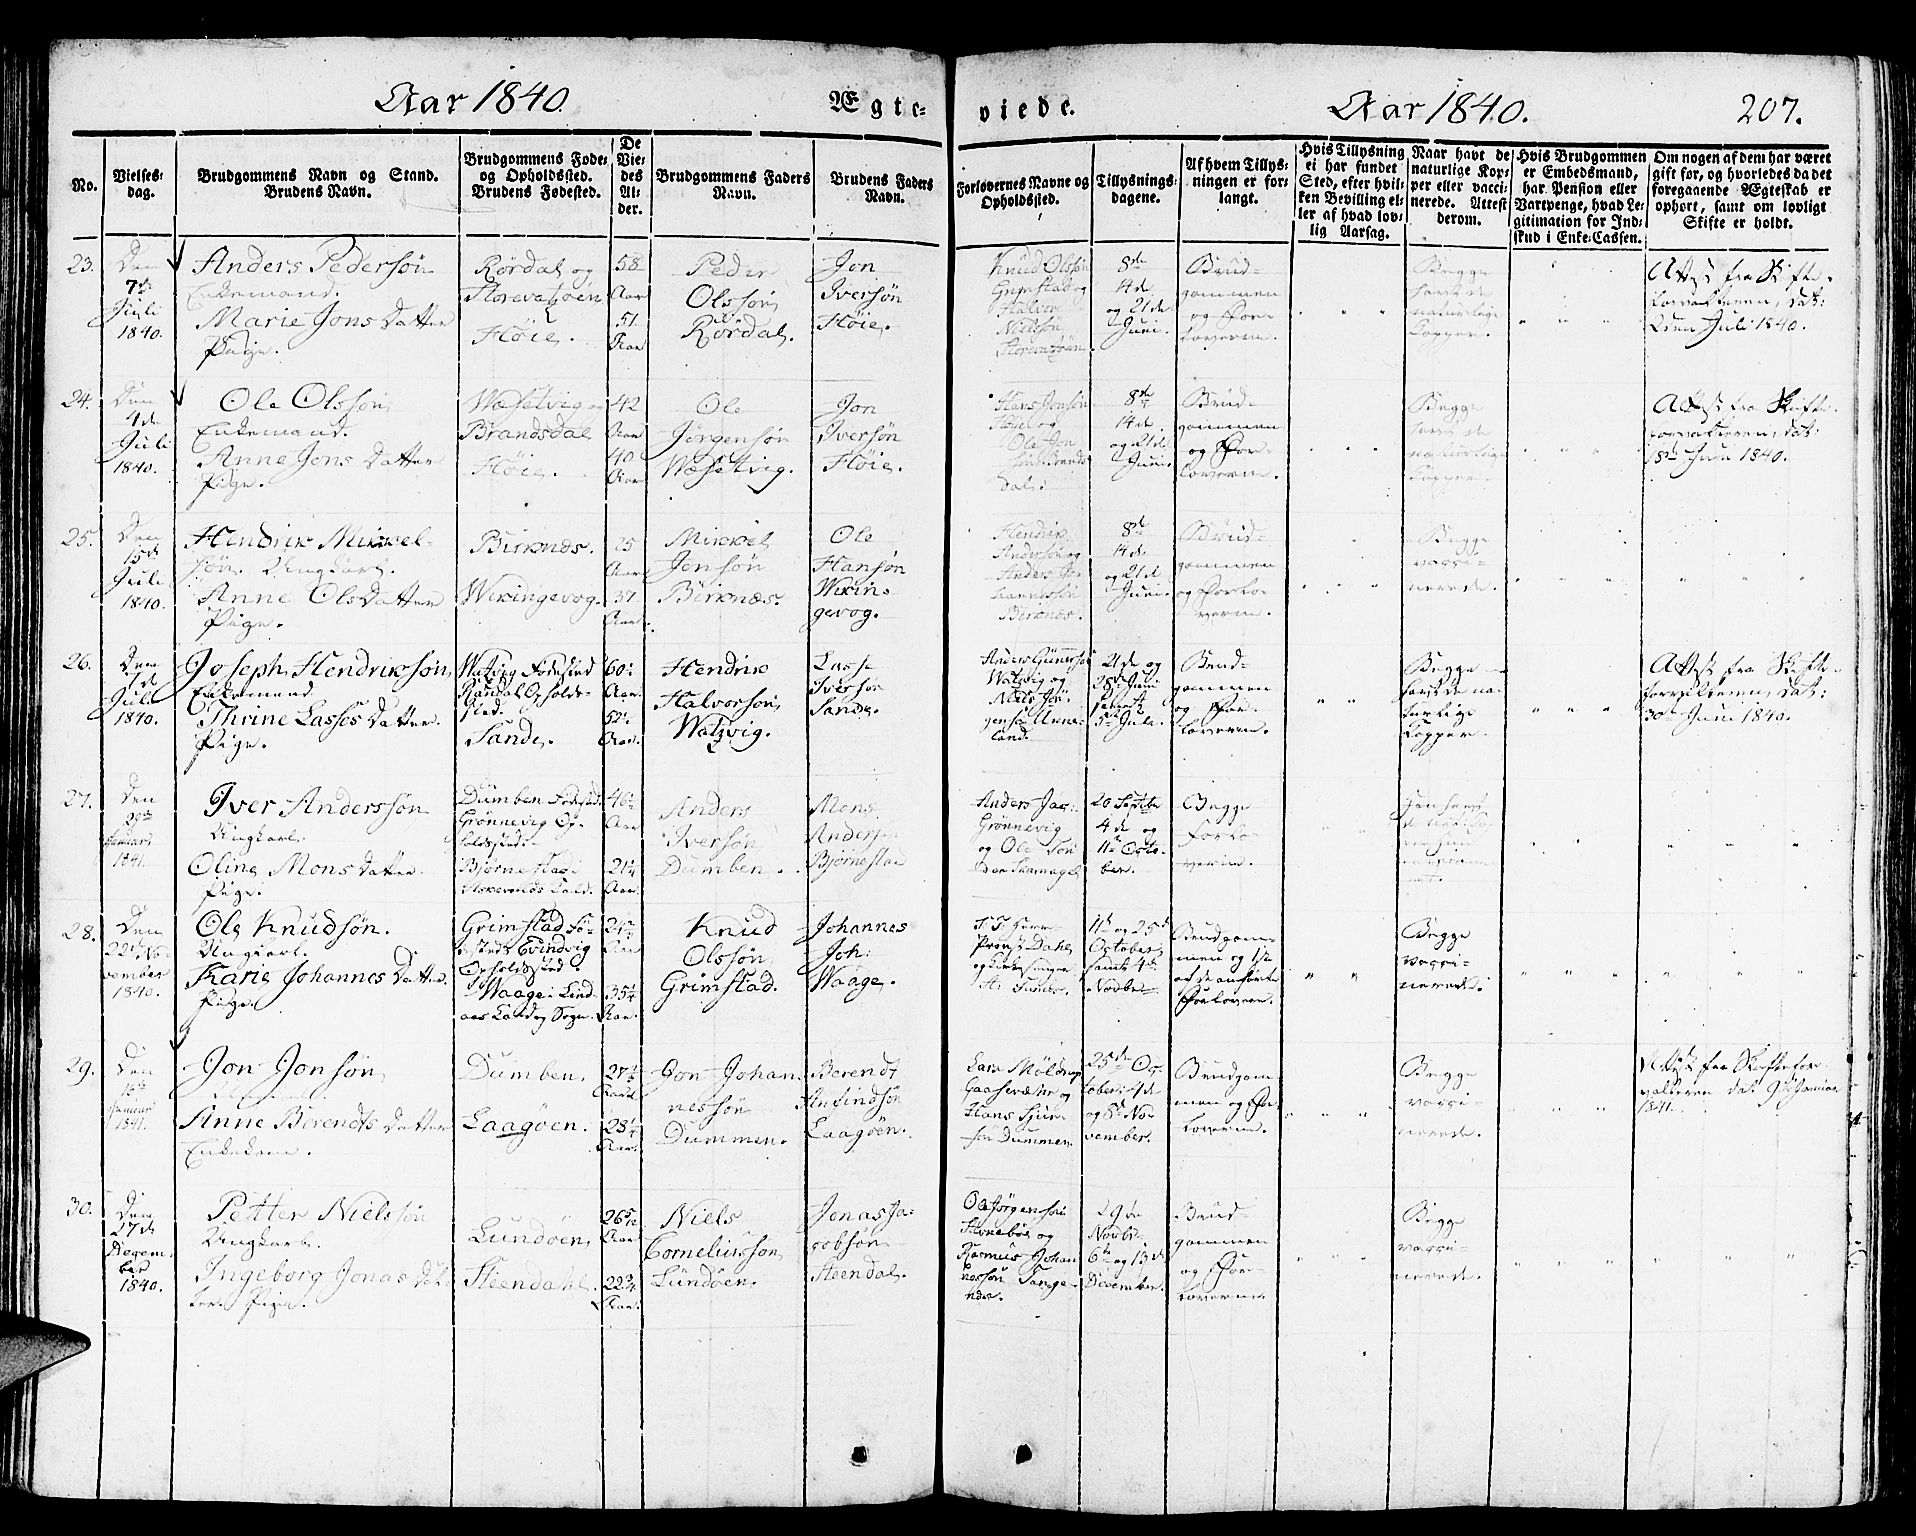 Aar 1840.
Ægte-
viede.
Aar 1840.
207.
No.
Vielses-
dag.
Brudgommens Navn og Stand.
Brudens Navn.
Brudgommens Føde-
og Opholdssted.
Brudens Fødested.
De
Vie-
des
Al-
der.
Brudgommens Faders
Navn.
Brudens Faders
Navn.
Forlovernes Navne og
Opholdssted.
Tillysnings-
dagene.
Af hvem Tillys-
ningen er for-
langt.
Hvis Tillysning
ei har fundet
Sted, efter hvil-
ken Bevilling el-
ler af hvad lov-
lig Aarsag.
Naar havt de
naturlige Kop-
per eller vacci-
nerede. Attest
derom.
Hvis Brudgommen
er Embedsmand,
har Pension eller
Vartpenge, hvad Le-
gitimation for Ind-
skud i Enke-Cassen.
Om nogen af dem har været
gift før, og hvorledes da det
foregaaende Ægteskab er
ophørt, samt om lovligt
Skifte er holdt.
23.
Den
7de
Juli
1840.
Anders Pedersøn
Enkemand.
Marie Jons Datter
Pige.
Rørdal og
Høie.
58
Aar
51.
Aar
Peder
Olssøn
Rørdal.
Jon
Iversøn
Høie.
Knud Olssøn
Grimstad og
Halvor
Nielssøn
8de
14de
og 21de
Juni.
Brud-
gommen
og For-
loverne.
Begge
havt de
naturlige
Kopper.
Attest fra Skifte-
forvalteren, dat:
2den Juli 1840.
24.
Den
4de
Juli
1840.
Ole Olssøn
Enkemand.
Anne Jons Datter
Pige.
Brandsdal
Høie.
42
Aar
40
Aar
Ole
Jørgensøn
Wæselvig.
Jon
Iversøn
Høie.
Hans Jonsøn
Høie og
Ole Jon
8de
14de
og 21de
Juni.
Brud-
gommen
og For-
loverne.
Begge
havt de
naturlige
Kopper.
Attest fra Skifte-
forvalteren, dat:
18de Juni 1840.
25.
Den
15de
Juli
1840.
Hendrik Mikkel-
søn. Ungkarl.
Anne Ols Datter
Pige.
Birknæs.
Wikingevog.
25
Aar
37
Aar.
Mikkel
Jonsøn
Birknæs.
Ole
Hansøn
Wikin-
gevog.
Hendrik
Andersøn og
Anders Jo-
hannessøn
Birknæs.
8de
14de
og 21de
Juni.
Brud-
gommen
og Forlo-
verne.
Begge
vacci-
nerede.
26.
Den
7de
Juli
1840.
Joseph Hendriksøn
Enkemand
Thrine Lasses Datter
Pige.
Watzvig Fødested
Randal Opholds-
sted.
Sande.
60½
Aar.
Aar.
Hendrik
Halvorsøn
Watzvig.
Lasse
Iversøn
Sande.
Anders Gunnersøn
Watzvig og
Niels Jør-
gensøn Anne-
land.
21de og
28de Juni
samt
5te Juli.
Brud-
gommen
og For-
loverne.
Begge
havt de na-
turlige
Kopper.
Attest fra Skifte-
forvalteren, dat:
30te Juni 1840.
27.
Den
Januari
1841.
Iver Anderssøn
Ungkarl.
Oline Mons Datter.
Pige.
Dumben Fødested.
Grønnevig Op-
holdssted.
Anders
Iversøn
Dumben.
Mons
Anders
Bjørnestad
Anders Jac:
Grønnevig
og Ole
20 Septbr
4de og
11te Octo-
ber.
Begge
Forlo-
verne.
28.
Den
22de No-
vember
1840.
Ole Knudsøn.
Ungkarl.
Karie Johannes Datter.
Pige.
Grimstad Fø-
desteds Evindvig
Opholdssted.
Waage i Lind-
aas Landog Sogn.
35¼
Aar.
Knud
Olssøn
Grimstad.
Johannes
Joh:
Waage.
Provst Dahl
11te og 25de
October
samt 4de
Novbr.
Brudgom-
men og 1ste
af de anførte
Forlovere.
Begge
vacci-
nerede.
29.
Den
15de
Januar
1841.
Jon Jonsøn
Anne Berendts Datter
Enkekone.
Dumben.
Laagøen.
27½
Aar
28¼
Aar.
Jon Johan-
nessøn
Dummen.
Berendt
Anfindsøn
Laagøen.
Lars Møldrup
Gaaseværøe og
Hans Sjur-
søn Dummen
25de Oc-
tober, 4de
og 8de No-
vember.
Brudgom-
men og For-
loverne.
Begge
vacci-
nerede.
Attest fra Skiftefor-
valteren dat. 9de Januar
1841.
30.
Den
27de
Decem-
ber
1840.
Petter Nielssøn
Ungkarl.
Ingeborg Jonas Dat-
ter. Pige.
Lundøen,
Steendahl.
26
Aar
22¾
Aar.
Niels
Corneliussøn
Lundøen.
Jonas Ja-
cobsøn
Steendal.
Ole Jørgensøn
Steenebøe og
Rasmus Johan-
nessøn Tange-
29de
Novbr.
6te og 13de
December.
Brud-
gommen
og For-
loverne.
Begge
vacci-
nerede.